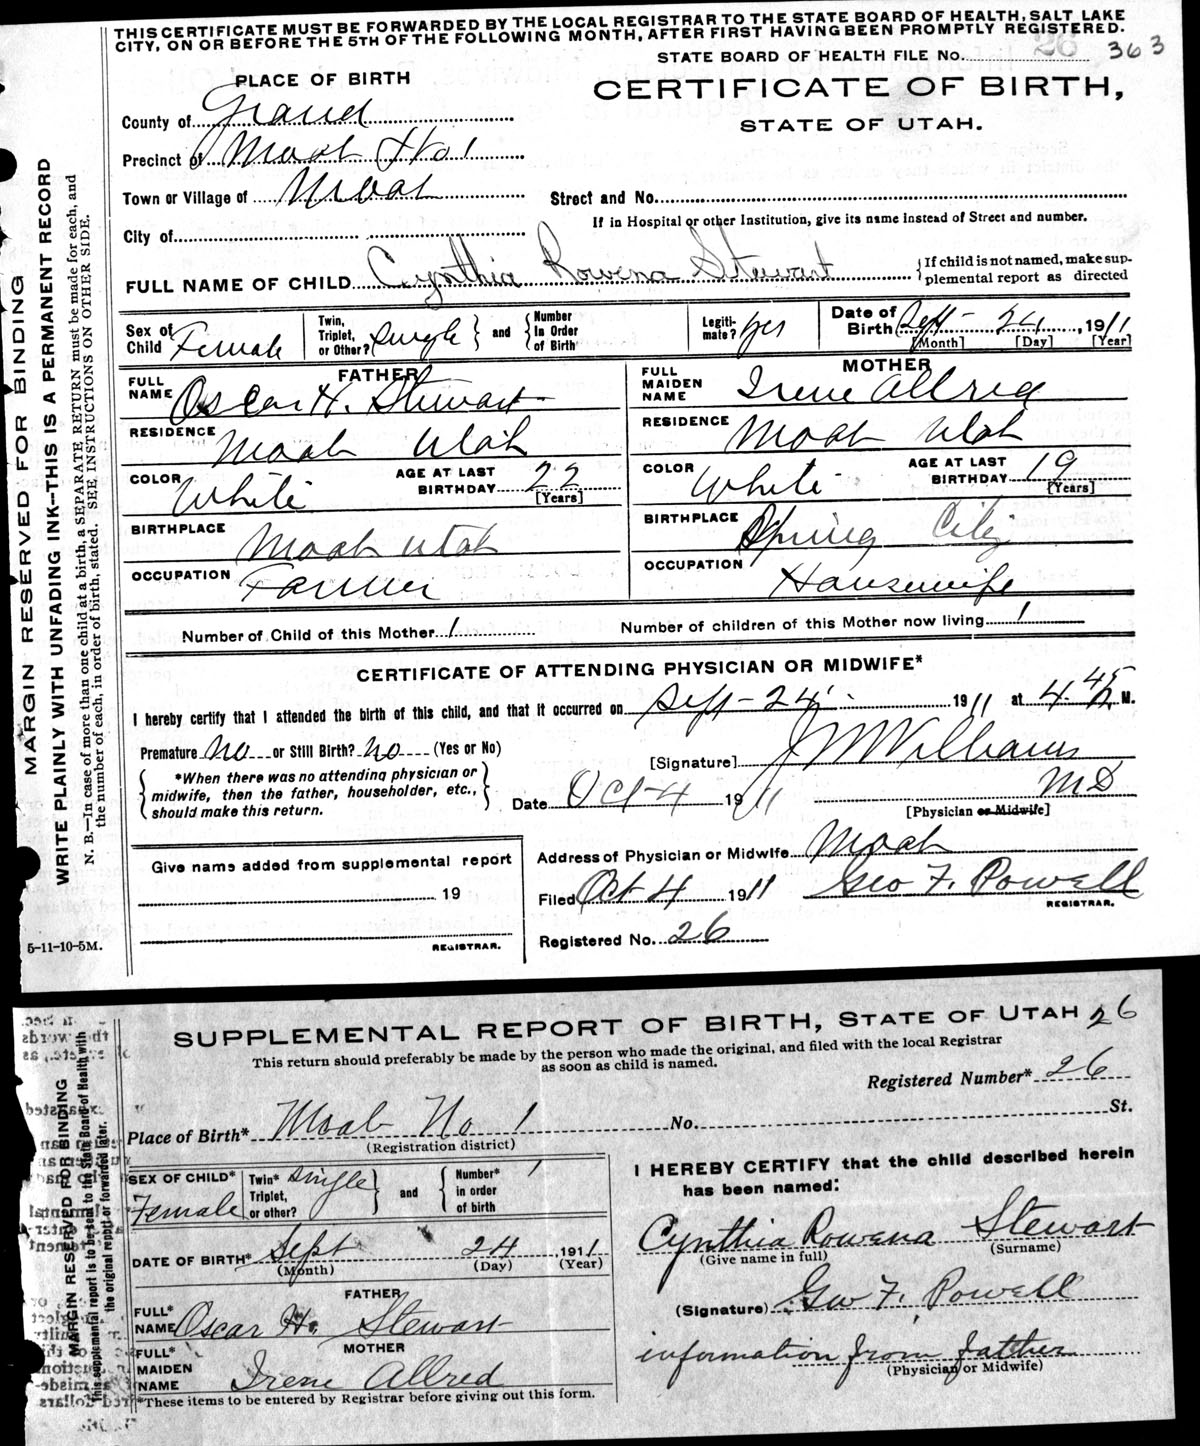 THIS CERTIFICATE MUST BE FORWARDED BY THE LOCAL REGISTRAR TO THE STATE BOARD OF HEALTH, SALT LAKE
CITY, ON OR BEFORE THE 5TH OF THE FOLLOWING MONTH, AFTER FIRST HAVING BEEN PROMPTLY REGISTERED.
STATE BOARD OF HEALTH FILE No. 26 363
PLACE OF BIRTH
CERTIFICATE OF BIRTH,
STATE OF UTAH.
County of Grand
Precinct of Moab No 1
Town or Village of Moab
Street and No.
If in Hospital or other Institution, give its name instead of Street and number.
City of
FULL NAME OF CHILD Cynthia Rowena Stewart
If child is not named, make sup-
plemental report as directed
Sex of Child Female
Twin, Triplet, or Other? Single and Number In Order of Birth
Legiti-mate? Yes
Date of Birth Sept - 24, 1911
[Month] [Day] [Year]
FATHER
FULL NAME Oscar H. Stewart
RESIDENCE Moab Utah
COLOR White AGE AT LAST BIRTHDAY 22 [Years]
BIRTHPLACE Moab Utah
OCCUPATION Farmer
MOTHER
FULL MAIDEN NAME Irene Allred
RESIDENCE Moab Utah
COLOR White AGE AT LAST BIRTHDAY 19 [Years]
BIRTHPLACE Spring City
OCCUPATION Housewife
Number of Child of this Mother 1 Number of children of this Mother now living 1
CERTIFICATE OF ATTENDING PHYSICIAN OR MIDWIFE*
I hereby certify that I attended the birth of this child, and that it occurred on Sept - 24 1911 at 4.45 M.
Premature no or Still Birth? no (Yes or No)
[Signature] J M Williams
M D
*When there was no attending physician or
midwife, then the father, householder, etc.,
should make this return.
Date Oct-4 1911
[Physician or Midwife]
Give name added from supplemental report
19
REGISTRAR.
Address of Physician or Midwife Moab
Filed Oct 4 1911 Geo F. Powell
REGISTRAR.
Registered No. 26
5-11-10-5M.
MARGIN RESERVED FOR BINDING
WRITE PLAINLY WITH UNFADING INK--THIS IS A PERMANENT RECORD
N. B.—In case of more than one child at a birth, a SEPARATE RETURN must be made for each, and
the number of each, in order of birth, stated. SEE INSTRUCTIONS ON OTHER SIDE.
SUPPLEMENTAL REPORT OF BIRTH, STATE OF UTAH 26
This return should preferably be made by the person who made the original, and filed with the local Registrar
as soon as child is named.
Registered Number* 26
Place of Birth* Moab No 1 No. St.
(Registration district)
SEX OF CHILD* Female
Twin* Triplet, or other? Single and Number* in order of birth 1
DATE OF BIRTH* Sept 24, 1911
(Month) (Day) (Year)
FATHER
FULL* NAME Oscar H. Stewart
MOTHER
FULL* MAIDEN NAME Irene Allred
*These items to be entered by Registrar before giving out this form.
I HEREBY CERTIFY that the child described herein
has been named:
Cynthia Rowena Stewart
(Give name in full) (Surname)
(Signature) Geo F. Powell
information from father
(Physician or Midwife)
MARGIN RESERVED FOR BINDING
This supplemental report is to be sent to the State Board of Health with
the original report or forwarded later.